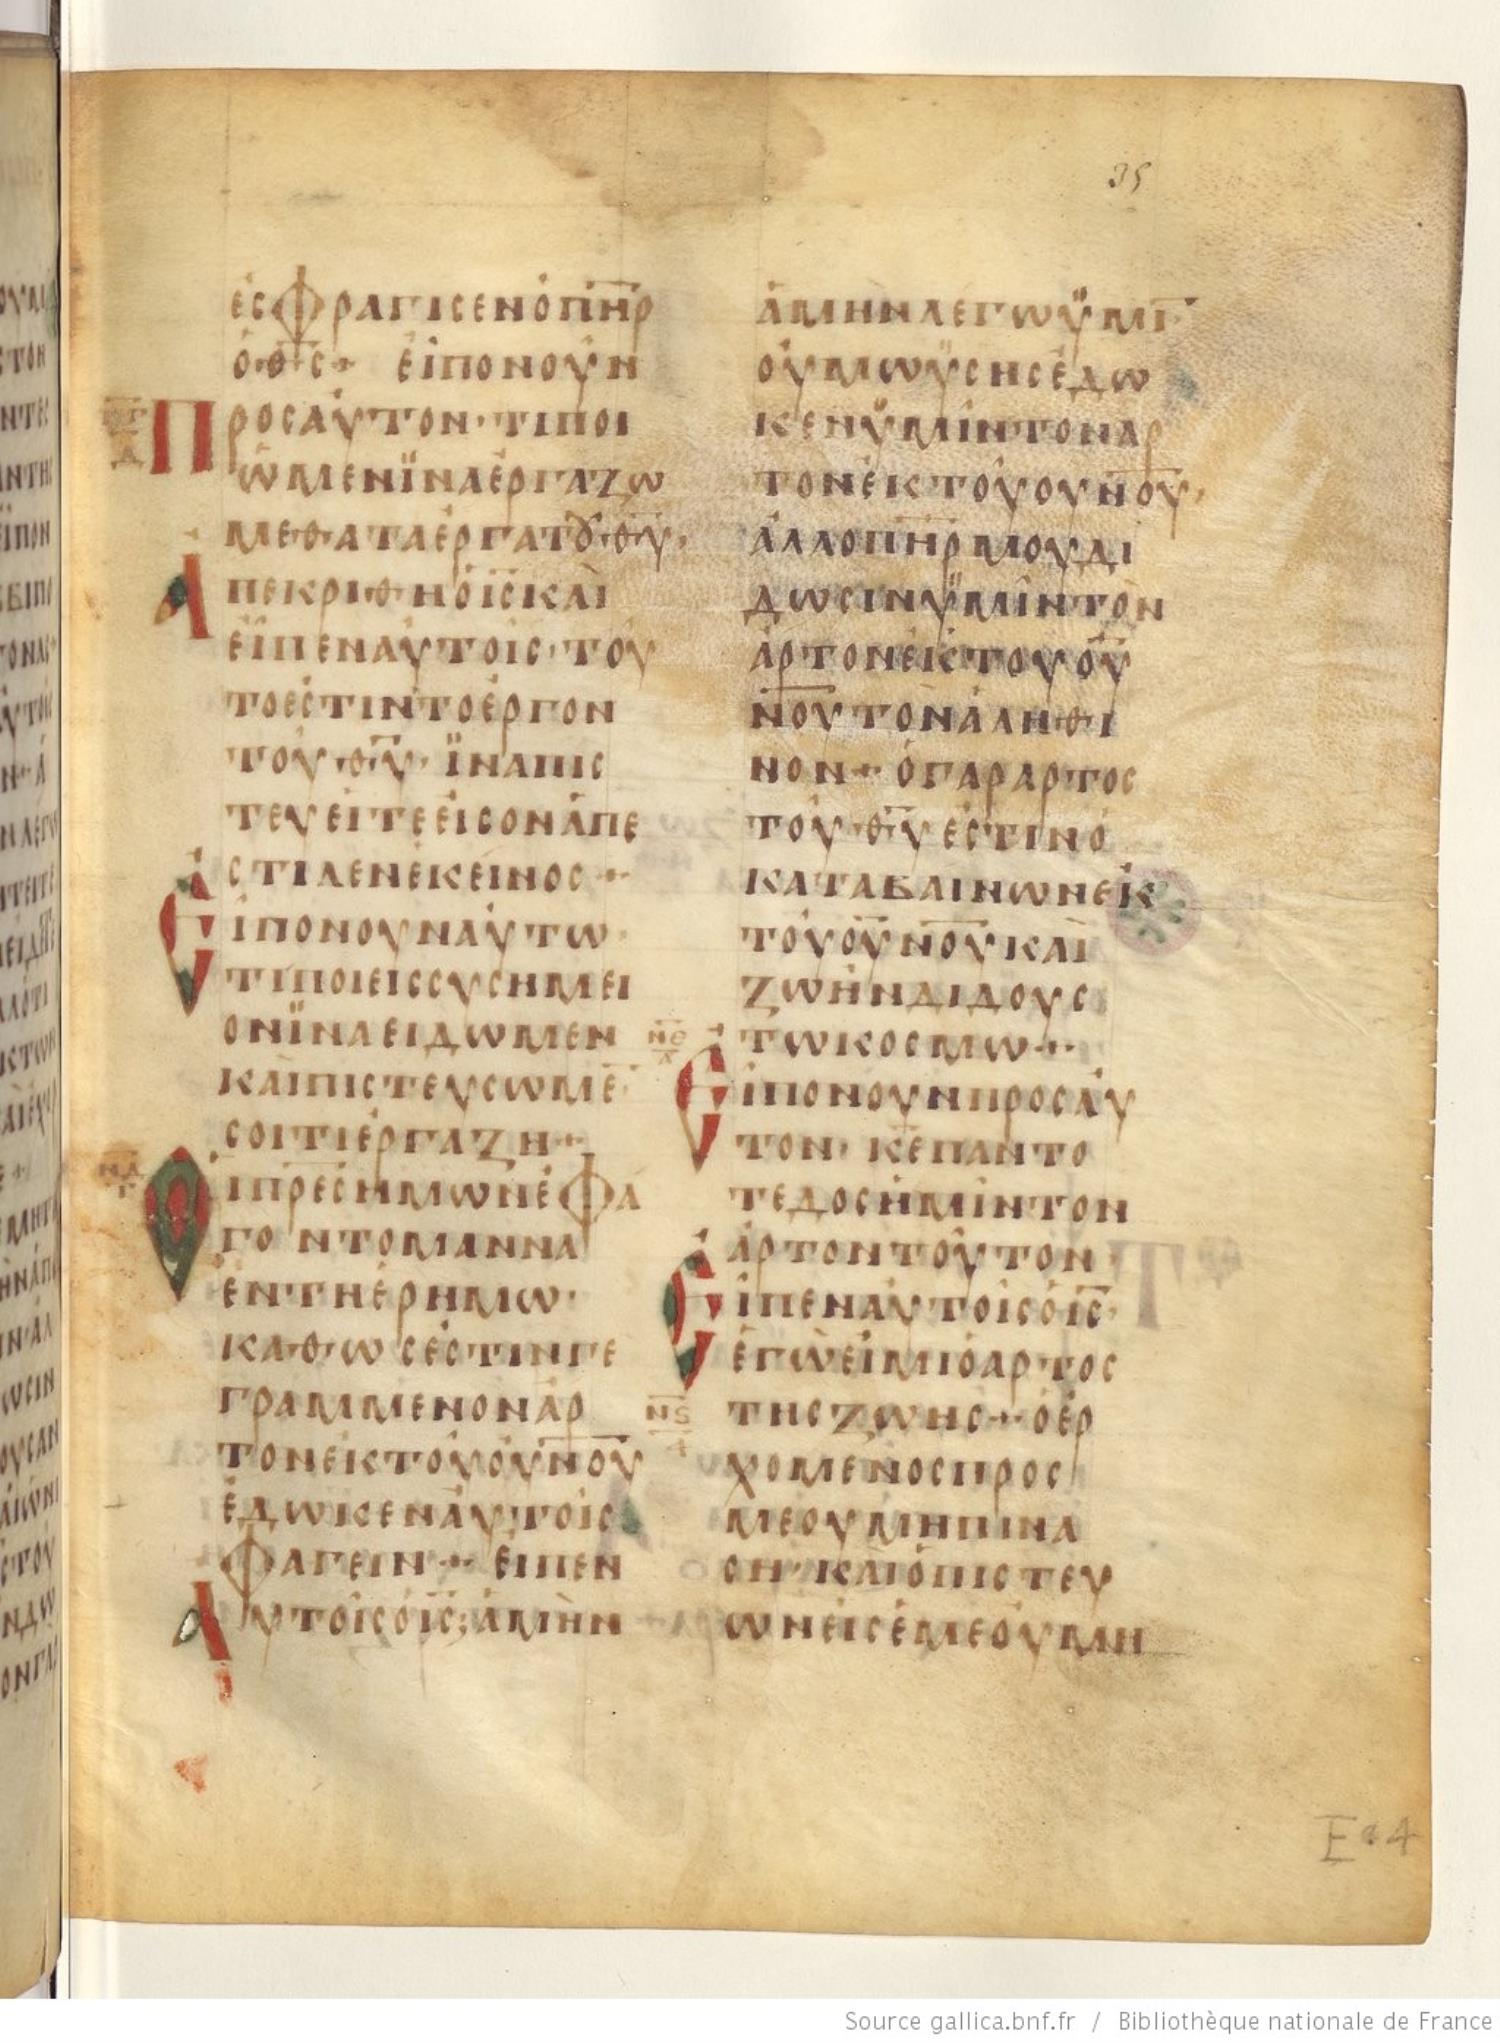 35
ἐσφραγισενὁπ̅η̅ρ̅
ὁθ̅ς̅ εἰπονοὐν
προσαὐτον·τιποι
ὦμενϊναἐργαζω
μεθαταἐργατȣθ̅υ̅·
ἀπεκριθηὁι̅ς̅καὶ
εἰπεναὐτοις·τοὐ
τοἐστιντοἐργον
τοὐθ̅υ̅·ϊναπις
τευειτεεἰςονἀπε
στιλενἐκεινος
εἰπονουναὐτω·
τιποιεισσυσημει
ονϊναειδωμεν
καὶπιστευσωμε̅
σοιτιἐργαζη
οἱπ̅ρ̅ε̅ςημωνἐφα
γοντομαννα
ἐντηἐρημω·
καθωςἐστινγε
γραμμενονἀρ
τονἐκτοὐοὐν̅ο̅υ̅
ἐδωκεναὐτοις
φαγειν εἰπεν
αυτοῖςὁι̅ς̅;ἀμὴν
ἀμηνλεγωϋμι̅
οὐμωϋσηςἐδω
κενϋμὶντοναρ
τονἐκτοὐουν̅ο̅υ̅·
ἀλλοπ̅η̅ρ̅μουδι
δωσινϋμῖντὸν
ἀρτονἐκτουο̅υ̅
ν̅ο̅υ̅τοναληθι
νον ὁγαραρτος
τοὐθ̅υ̅εστινὁ
καταβαινωνἐκ
τοὐο̅υ̅ν̅ο̅υ̅καὶ
ζωὴνδιδους
τωκοσμω
εἰπονουνπροσαὐ
τον·κ̅ε̅παντο
τεδοςἡμὶντον
ἀρτοντοῦτον·
εἰπεναὐτοῖςὁι̅ς̅·
ἐγὼεἰμιὁαρτος
τηςζωης ὁἐρ
χομενοσπρος
μεουμηπινα
ση·καὶὁπιστευ
ωνεἰςἐμεοὐμη
Source gallica.bnf.fr / Bibliothèque nationale de France